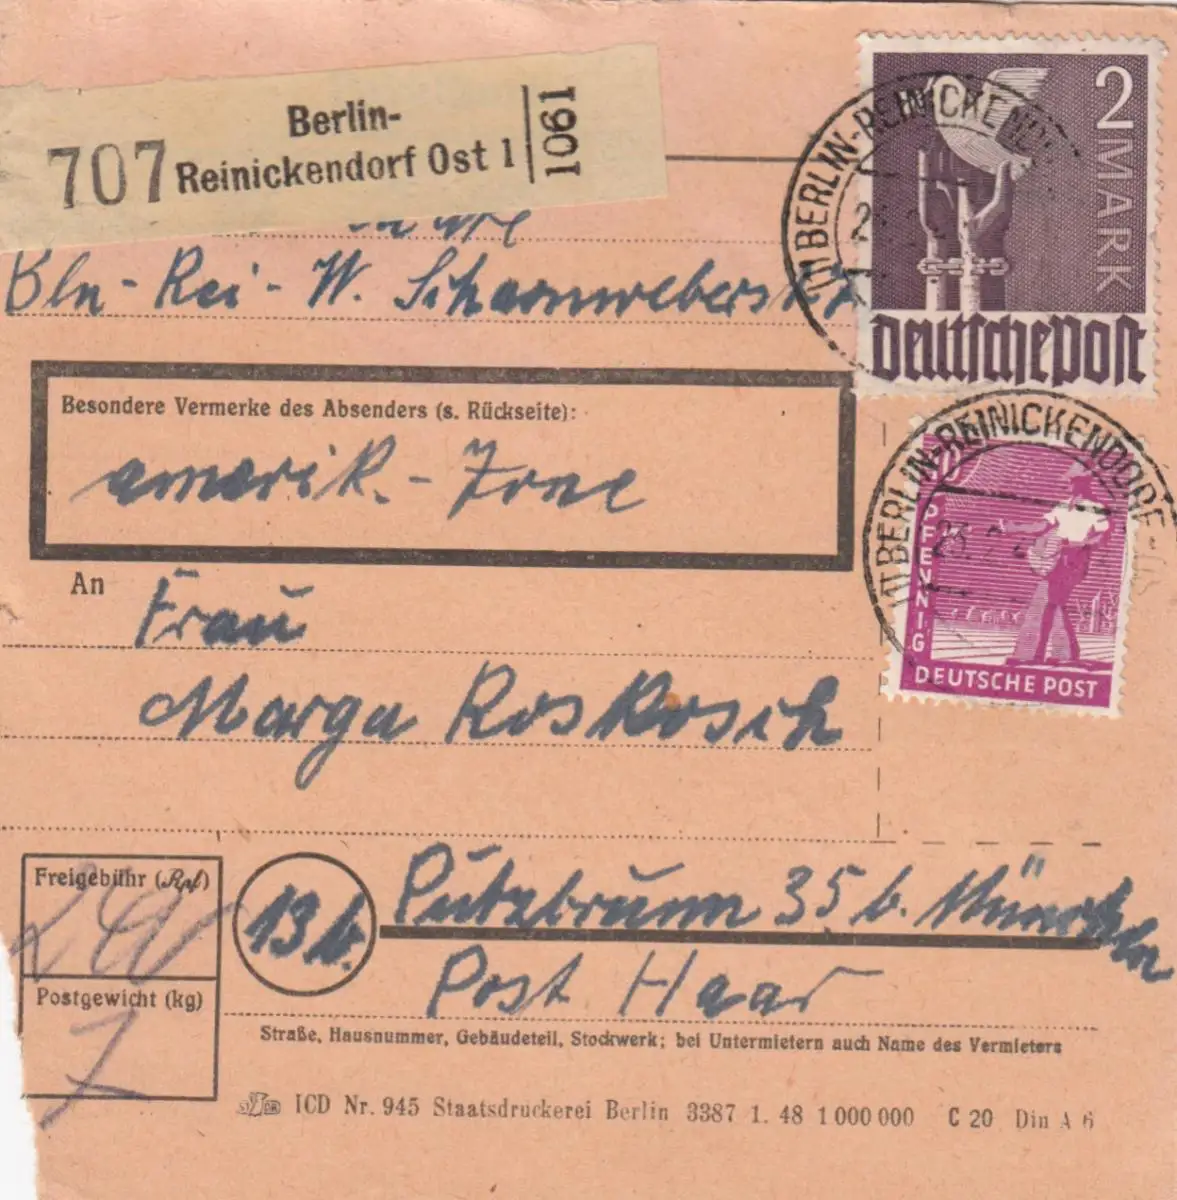 Berlin-
707 Reinickendorf Ost 1 1061
Bln - Rei - W. Scharnweberstr
2 MARK
BERLIN-REINICKENDO
Deutsche Post
Besondere Vermerke des Absenders (s. Rückseite):
amerik. - Zone
BERLIN-REINICKENDORF-
23.2
PFENNIG
DEUTSCHE POST
An
Frau
Marga Roskosch
Freigebühr (Rpf)
240
13 b.
Putzbrunn 35 b. München
Post Haar
Postgewicht (kg)
7
Straße, Hausnummer, Gebäudeteil, Stockwerk; bei Untermietern auch Name des Vermieters
ICD Nr. 945 Staatsdruckerei Berlin 3387 1. 48 1 000 000 C 20 Din A 6